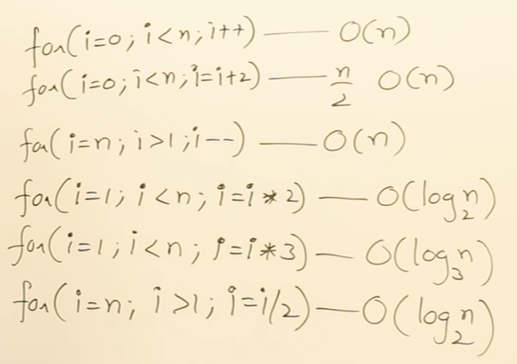 for(i=0; i<n; i++) —— O(n)
for(i=0; i<n; i=i+2) —— n/2 O(n)
for(i=n; i>1; i--) —— O(n)
for(i=1; i<n; i=i*2) —— O(log₂n)
for(i=1; i<n; i=i*3) — O(log₃n)
for(i=n; i>1; i=i/2) — O(log₂n)